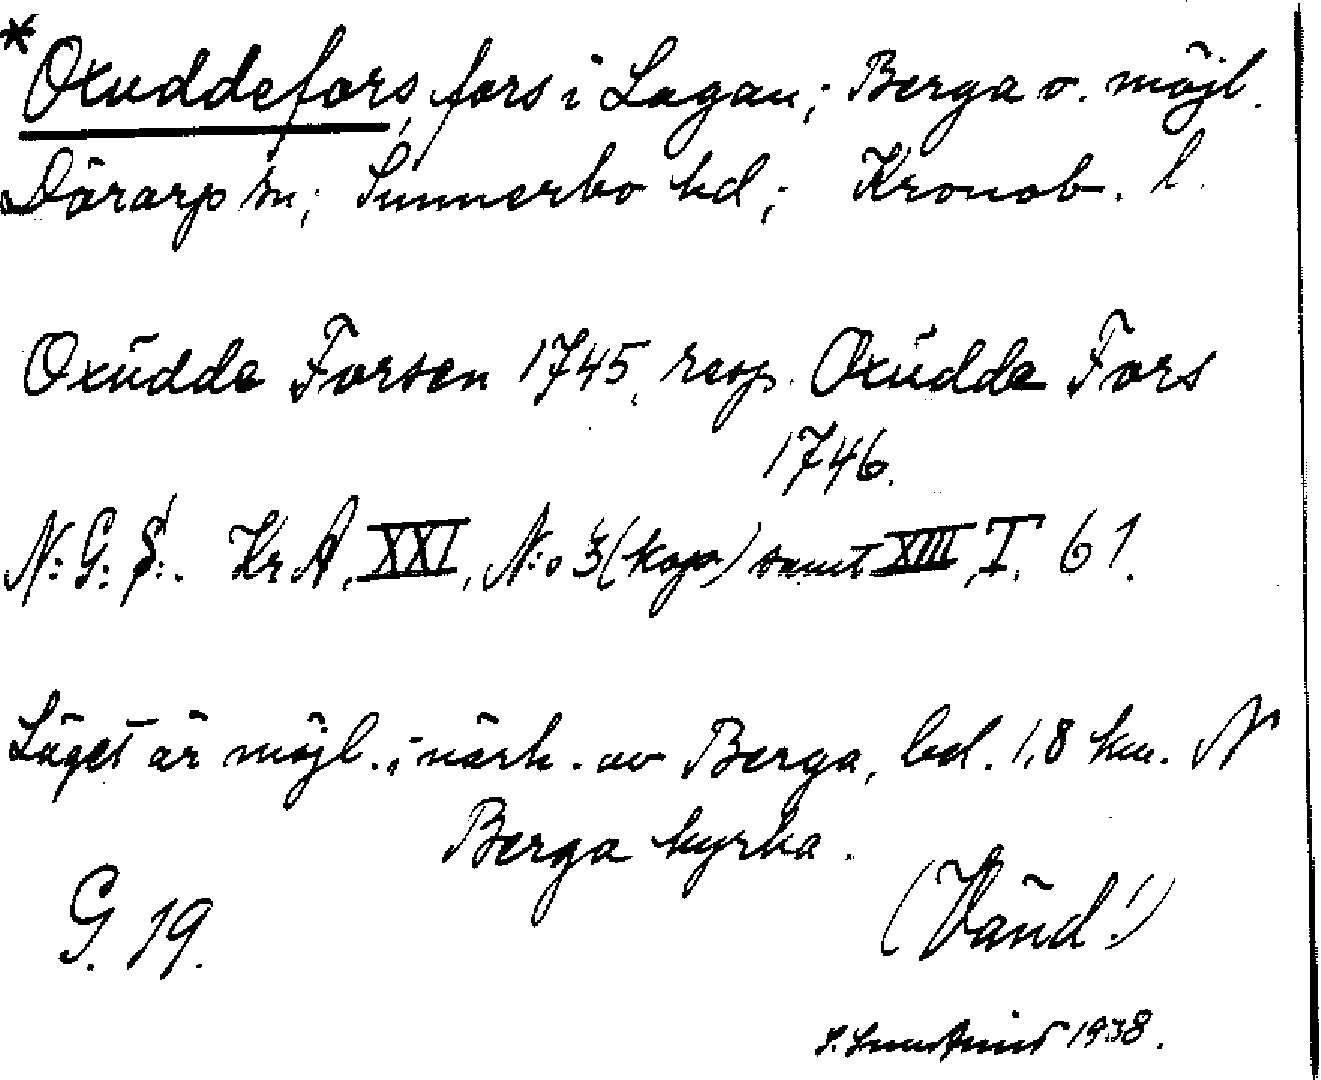 *Oxuddefors, fors i Lagan; Berga o. möjl.
Dörarp sn; Sunnerbo hd; Kronob. l.
Oxŭdde Forsen 1745, resp. Oxŭdde Fors
1746.
N:G:S:. KrA, XXI, N:o 3 (kop) samt XIII, I, 61.
Läget är möjl. i närh. av Berga, bel. 1,8 km. N
Berga kyrka.
G. 19. (Vänd!)
1938.